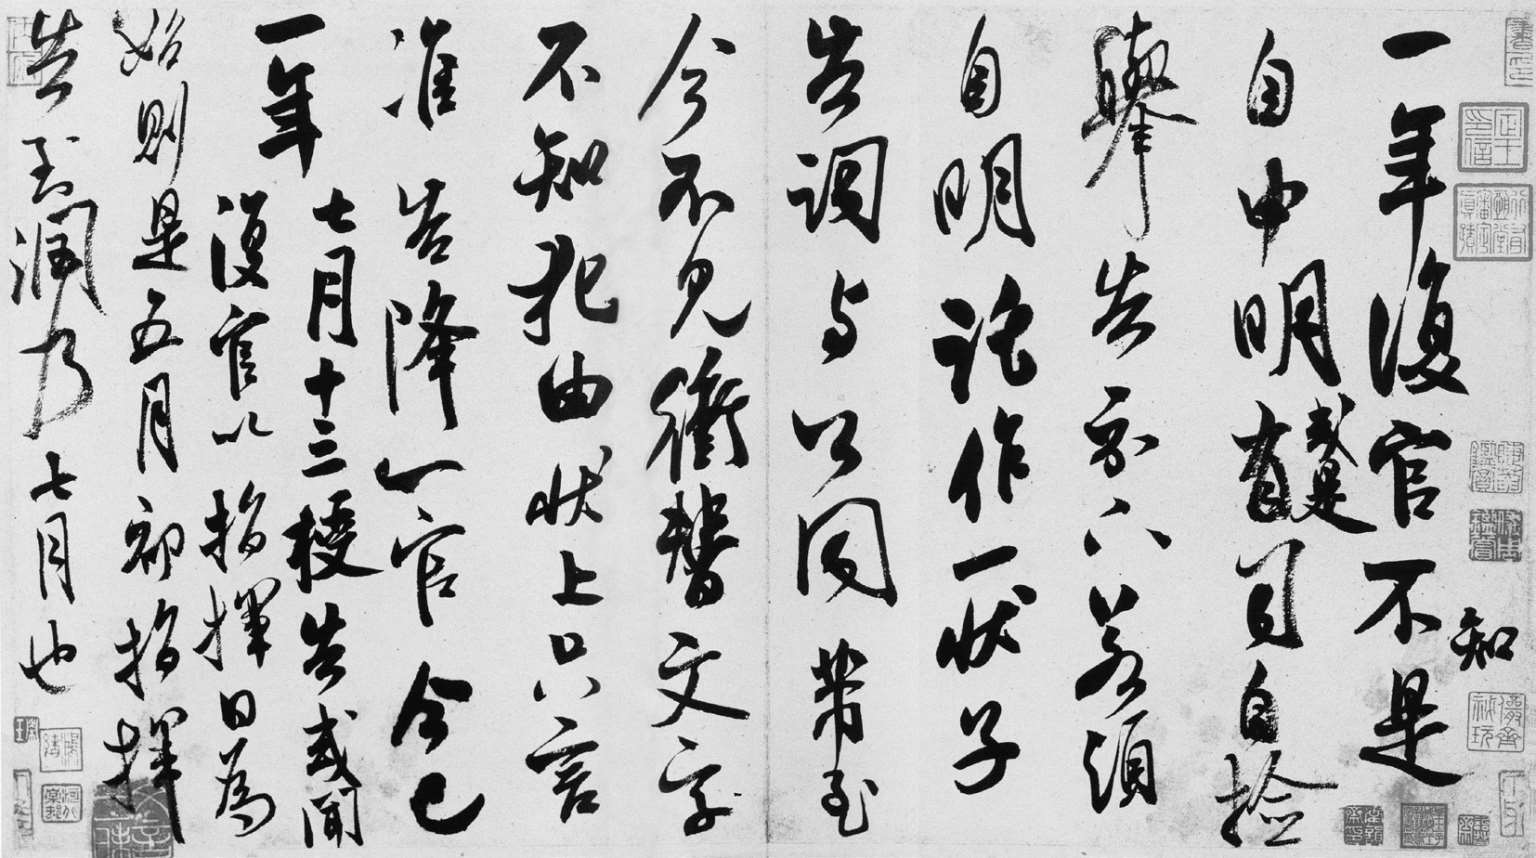 一年復官不知是
自申明或是有司自檢
舉告示下若須
自明託作一狀子
告詞與公同帶至
今不見衝替文字
不知犯由狀上只言
准告降一官今已
一年七月十三授告或聞
復官以指揮日為
始則是五月初指揮
告至潤乃七月也